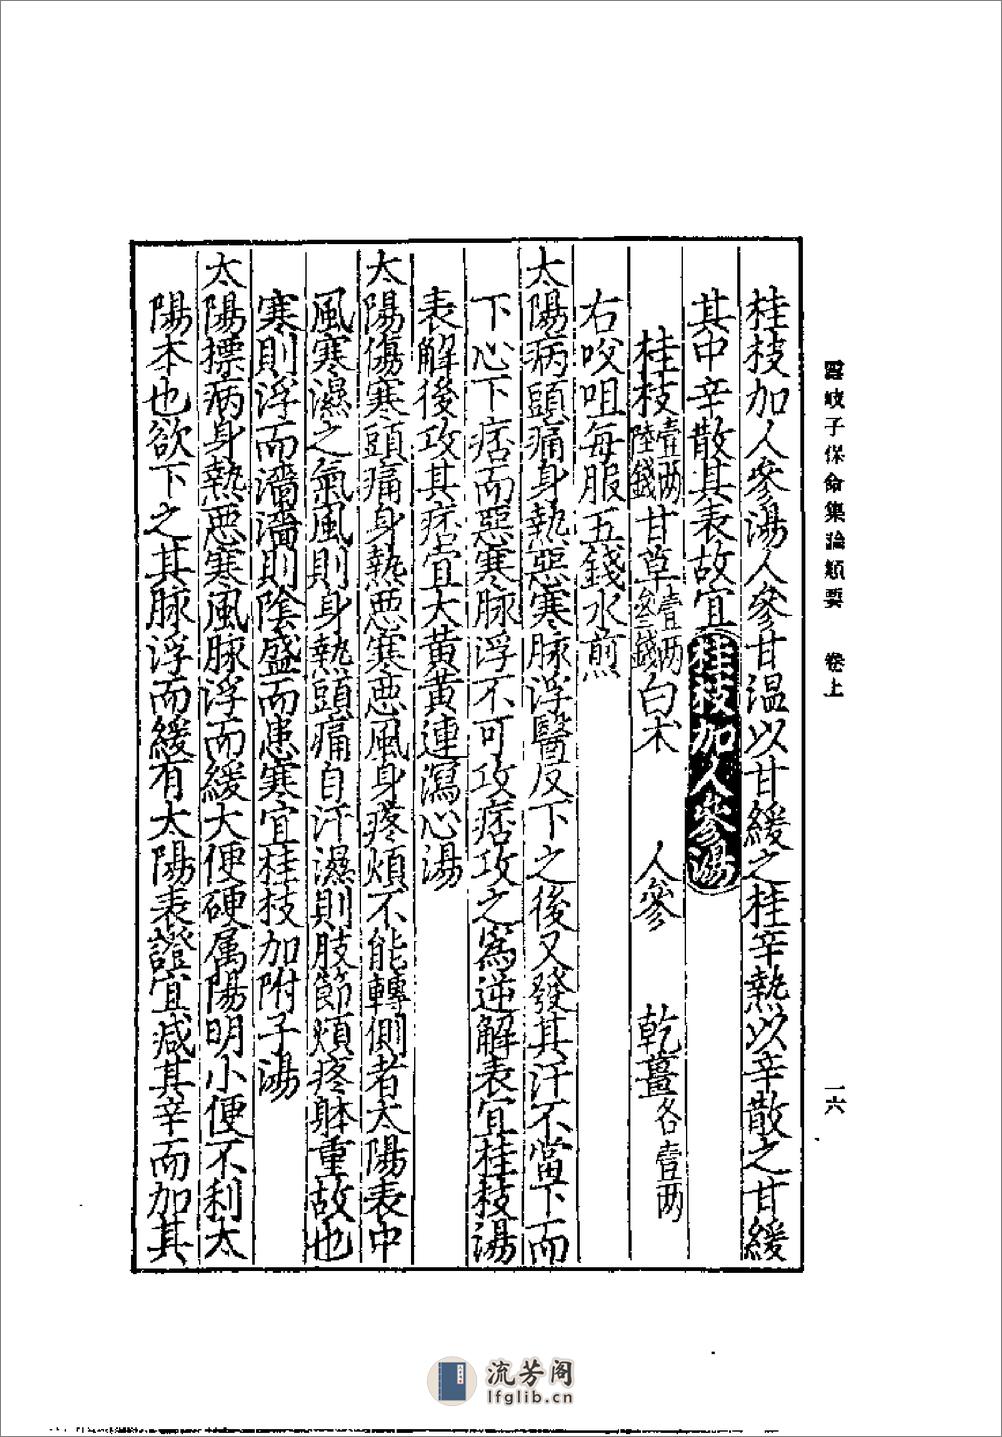 雲岐子保命集論類要 卷上 一六
桂枝加人參湯人參甘温以甘緩之桂辛熱以辛散之甘緩
其中辛散其表故宜桂枝加人參湯
桂枝壹两陸錢甘草壹两叁錢白术 人參 乾薑各壹两
右㕮咀每服五錢水煎
太陽病頭痛身熱惡寒脉浮醫反下之後又發其汗不當下而
下心下痞而惡寒脉浮不可攻痞攻之為逆解表宜桂枝湯
表解後攻其痞宜大黄黄連瀉心湯
太陽傷寒頭痛身熱悪寒悪風身疼煩不能轉側者太陽表中
風寒濕之氣風則身熱頭痛自汗濕則肢節煩疼躰重故也
寒則浮而濇濇則陰盛而患寒宜桂枝加附子湯
太陽摽病身熱悪寒風脉浮而緩大便硬属陽明小便不利太
陽本也欲下之其脉浮而緩有太陽表證宜减其辛而加其
流芳阁
lfglib.cn